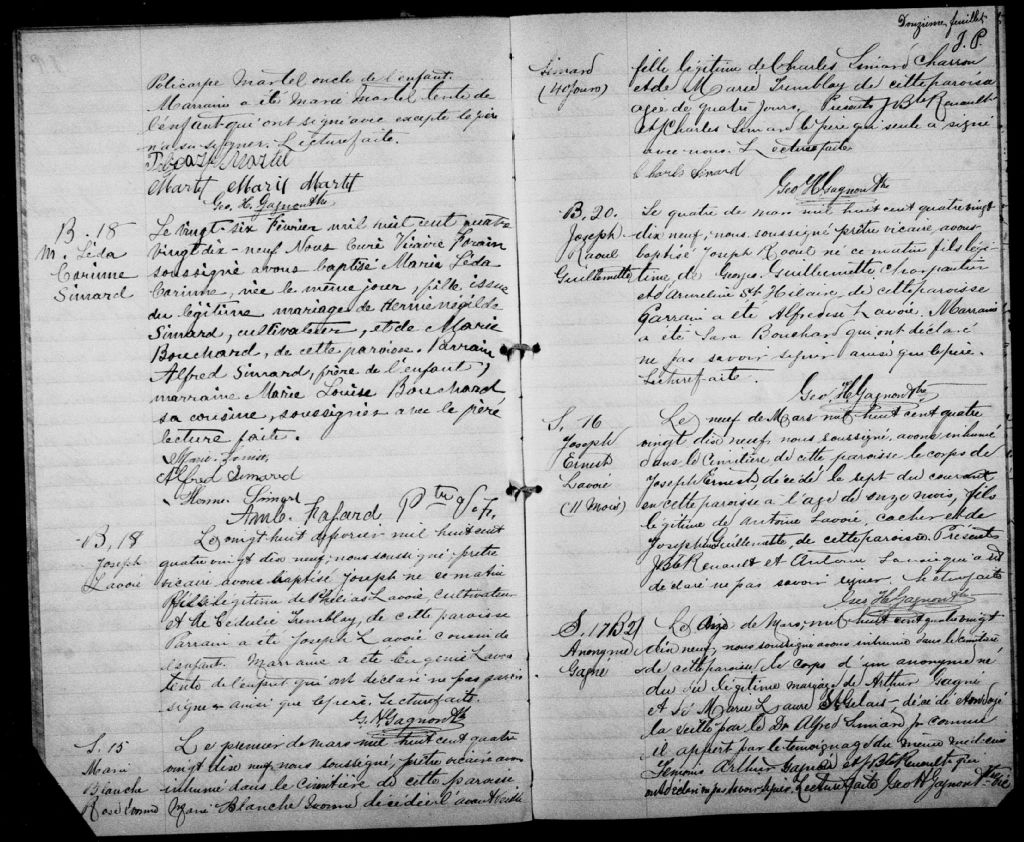 Policarpe Martel oncle de l'enfant.
Marraine a été Marie Martel tente de
l'enfant qui ont signé avec excepte le père
n'a su signer. Lecture faite.
Martel
Martel Marie Martel
Geo. H. Gagnon Ptre
B. 18
M. Léda
Corinne
Simard
Le vingt-six Février mil huit cent quatre
vingt dix-neuf Nous Curé Vicaire Forain
soussigné avons baptisé Marie Léda
Corinne, née le même jour, fille issue
du légitime mariage de Herménégilde
Simard, cultivateur, et de Marie
Bouchard, de cette paroisse. Parrain
Alfred Simard, frère de l'enfant,
marraine Marie Louise Bouchard
sa cousine, soussignés avec le père
lecture faite.
Marie-Louise
Alfred Simard
Simard
Amb. Fafard Ptre
B, 18
Joseph
Lavoie
Le vingt huit de février mil huit cent
quatre vingt dix neuf, nous soussigné prêtre
vicaire avons baptisé Joseph né ce matin
fils légitime de Thélias Lavoie, cultivateur
et de Cedulie Tremblay, de cette paroisse
Parrain a été Joseph Lavoie cousin de
l'enfant. Marraine a été Eugenie Lavoie
tente de l'enfant qui ont declaré ne pas savoir
signer ainsi que le père. Lecture faite.
G. H Gagnon Ptre
S. 15
Marie
Blanche
Rose
Le premier de mars mil huit cent quatre
vingt dix neuf, nous soussigné, prêtre vicaire avons
inhumé dans le cimitière de cette paroisse
Marie Blanche décédée l'avant veille
Douzième feuillet
J. P.
Simard
(4 Jours)
fille légitime de Charles Simard Charron
et de Marie Tremblay de cette paroisse
agée de quatre jours, Présents J. Bte Renault
et Charles Simard le père qui seule a signé
avec nous. Lecture faite
Charles Simard
Geo H Gagnon Ptre
B, 20.
Joseph
Raoul
Guillemette
Le quatre de mars mil huit cent quatre vingt
dix neuf, nous soussigné prêtre vicaire, avons
baptisé Joseph Raoul né ce matin fils légi-
time de Georges Guillemette
et d'Armeline St Hilaire, de cette paroisse
Parrain a été Alfred Lavoie, Marraine
a été Sara Bouchard qui ont déclaré
ne pas savoir signer ainsi que le père.
Lecture faite.
Geo, H Gagnon Ptre
S. 16
Joseph
Ernest
Lavoie
(11 Mois)
Le neuf de Mars mil huit cent quatre
vingt dix neuf, nous soussigné, avons inhumé
dans le cimitière de cette paroisse le corps de
Joseph Ernest, décédé le sept du courant
en cette paroisse à l'age de onze mois, fils
légitime de Antoine Lavoie, cocher et de
Josephine Guillemette, de cette paroisse, Présents
J Bte Renault et Antoine Lavoie qui a
declaré ne pas savoir signer. Lecture faite
Geo H Gagnon Ptre
S. 17 B 21
Anonyme
Gagné
Le onze de Mars, mil huit cent quatre vingt
dix neuf, nous soussigné avons inhumé dans le cimitière
de cette paroisse, le corps d'un anonyme né
du légitime mariage de Arthur Gagné
et de Marie Laure St Gelais décédé et ondoyé
la veille par le Dr Alfred Simard comme
il appert par le temoignage du même medecin
Temoins Arthur Gagné et J Bte Renault qui
ont déclaré ne pas savoir signer. Lecture faite Geo H Gagnon Ptre Vic